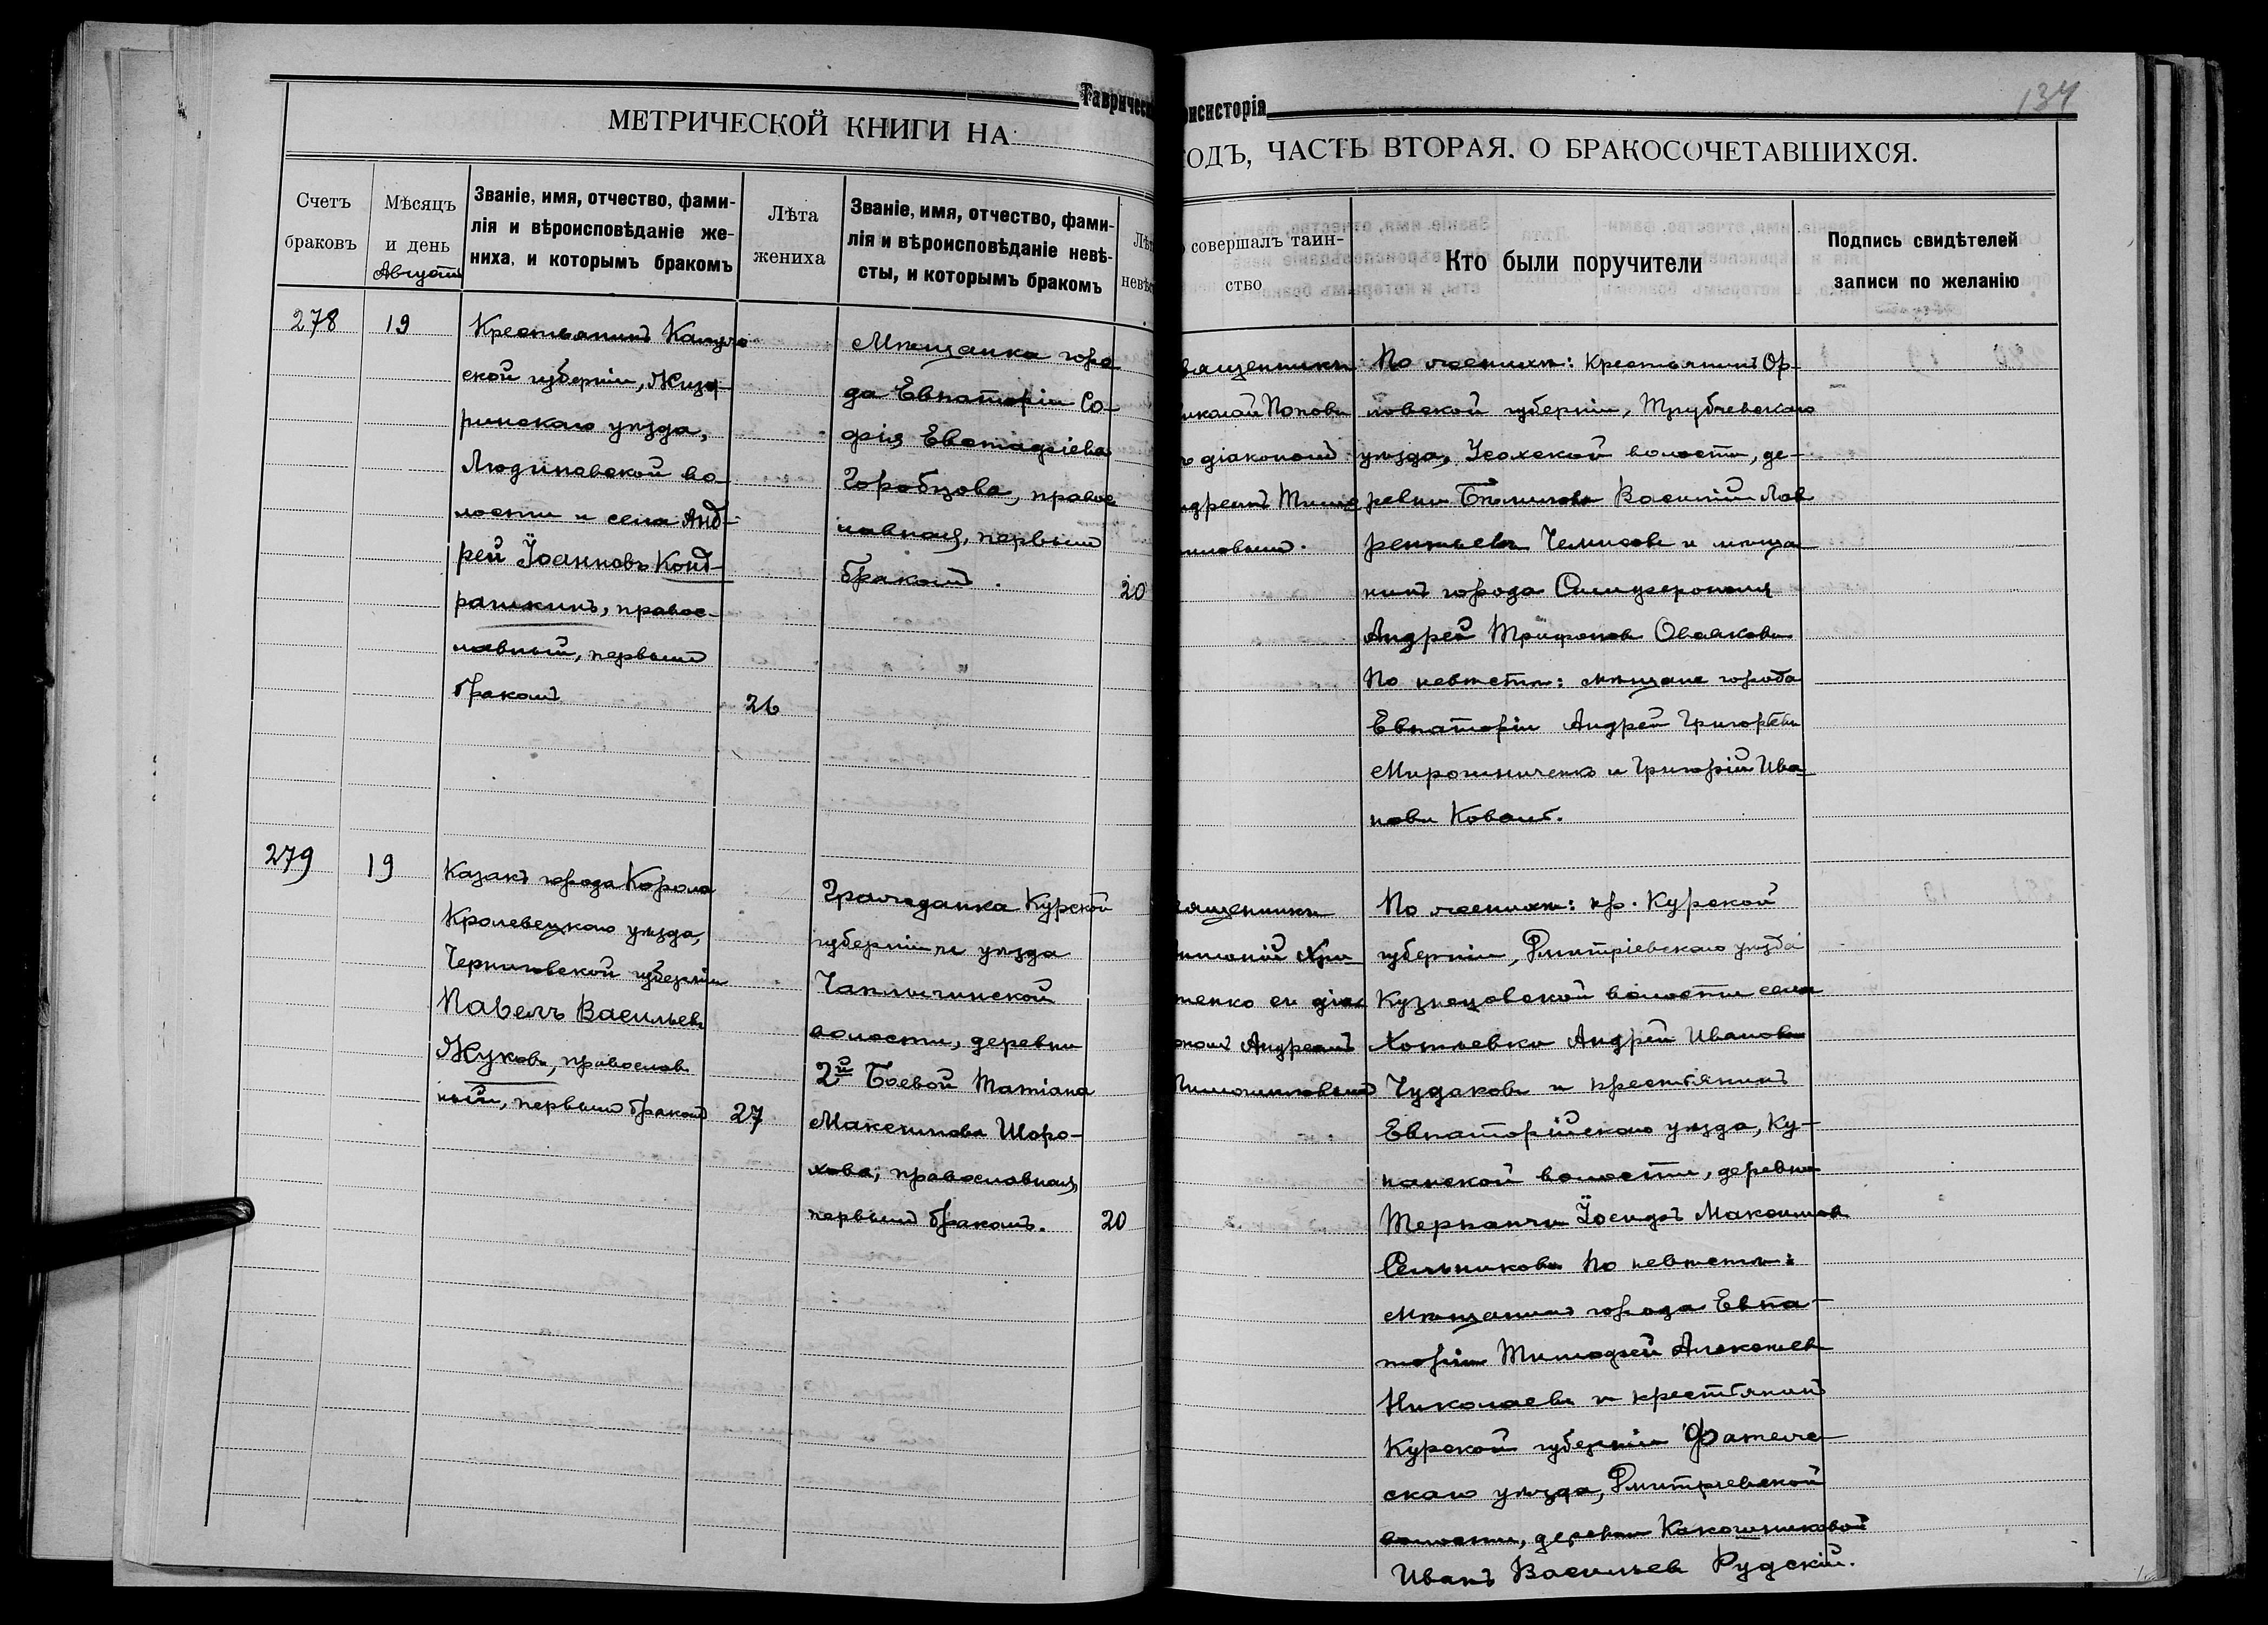 Таврическ
онсисторія
134
МЕТРИЧЕСКОЙ КНИГИ НА
ГОДЪ, ЧАСТЬ ВТОРАЯ, О БРАКОСОЧЕТАВШИХСЯ.
Счетъ
браковъ
Мѣсяцъ
и день
Августъ
Званіе, имя, отчество, фами-
лія и вѣроисповѣданіе же-
ниха, и которымъ бракомъ
Лѣта
жениха
Званіе, имя, отчество, фами-
лія и вѣроисповѣданіе невѣ-
сты, и которымъ бракомъ
Лѣт
невѣс
о совершалъ таин-
ство
Кто были поручители
Подпись свидѣтелей
записи по желанію
278
19
Крестьянинъ Калуж
ской губерніи, Жизд-
ринскаго уѣзда,
Людиновской во-
лости и села Анд-
рей Іоанновъ Конд-
рашкинъ, правос-
лавный, первымъ
бракомъ
26
Мѣщанка горо
да Евпаторіи Со-
фія Евстафіева
Горобцова, правос
лавная, первымъ
бракомъ.
20
вященникъ
иколай Поповъ
ъ діакономъ
ндреемъ Тимо
шновымъ.
По женихѣ: крестьянинъ Ор-
ловской губерніи, Трубчевскаго
уѣзда, Усохской волости, де-
ревни Василій Лав
рентьевъ Челисовъ и мѣща
нинъ города Симферополя
Андрей Трифоновъ Овсяковъ
По невѣстѣ: мѣщане города
Евпаторіи Андрей Григорьевъ
Мирошниченко и Григорій Ива-
новъ Коваль.
279
19
Казакъ города Корола
Кролевецкаго уѣзда,
Черниговской губерніи
Павелъ Васильевъ
Жуковъ, православ
ный, первымъ бракомъ
27
Гражданка Курской
губерніи и уѣзда
Чаплыгинской
волости, деревни
2й Боевой Татіана
Максимова Шоро-
хова, православная,
первымъ бракомъ.
20
вященникъ
Хри
тенко съ діак
ономъ Андреемъ
Тимошновымъ
По женихѣ: кр. Курской
губерніи, Дмитріевскаго уѣзда
Кузнецовской волости села
Хотѣевки Андрей Ивановъ
Чудаковъ и крестьянинъ
Евпаторійскаго уѣзда, Ку-
нанской волости, деревни
Терпанчи Іосифъ Максимов
Сельниковъ По невѣстѣ:
Мѣщанинъ города Евпа-
торіи Тимофей Алексѣевъ
Николаевъ и крестьянинъ
Курской губерніи Фатеж-
скаго уѣзда, Дмитріевской
волости, деревни
Иванъ Васильев Рудскій.